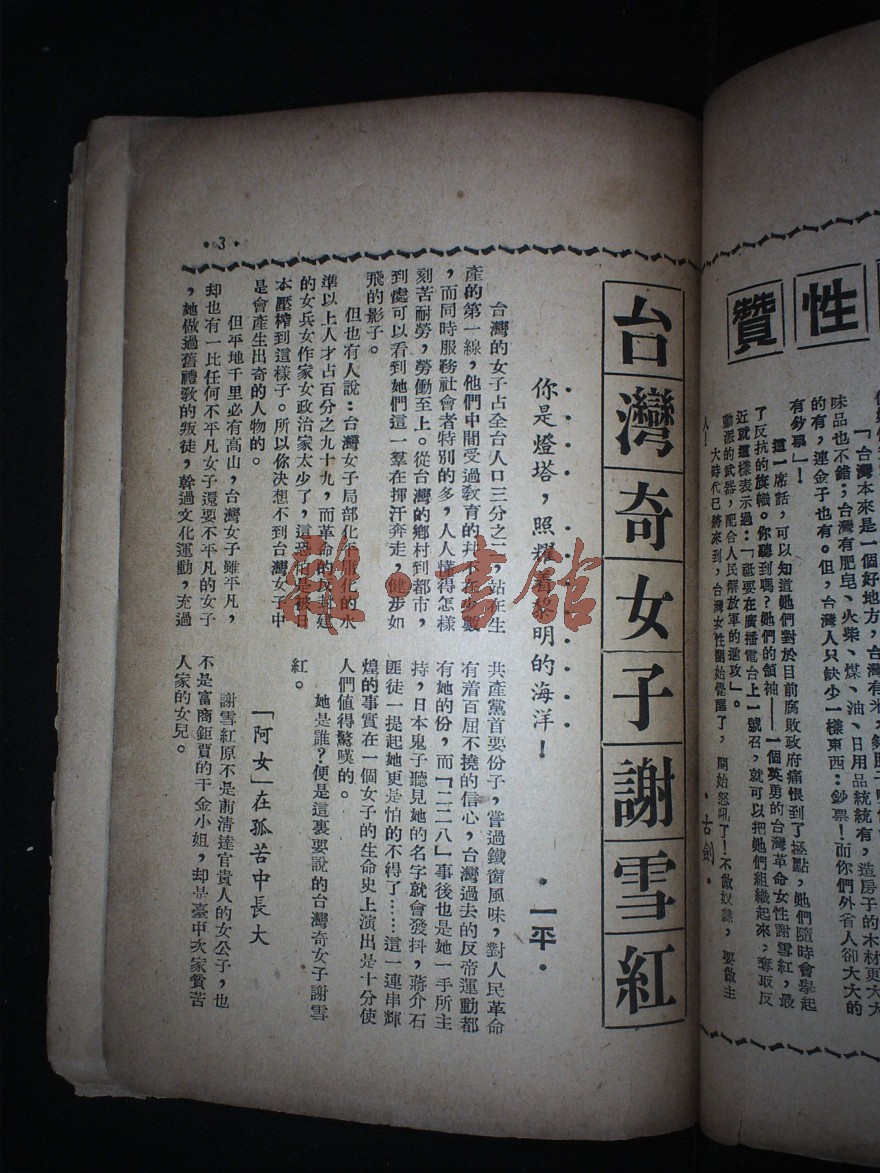 性
贊
「台灣本來是一個好地方，台灣有米，
味品也不錯；台灣有肥皂、火柴、煤、油、日用品統統有，造房子的木材更大大
的有，連金子也有。但，台灣人只缺少一樣東西：鈔票！而你們外省人卻大大的
有鈔票」！
這一席話，可以知道她們對於目前腐敗政府痛恨到了極點，她們隨時會舉起
了反抗的旗幟。你聽到嗎？她們的領袖——一個英勇的台灣革命女性謝雪紅，最
近就這樣表示過：「祇要在廣播電台上一號召，就可以把她們組織起來，奪取反
動派的武器，配合人民解放軍的進攻」。
大時代已將來到，台灣女性開始覺醒了，開始怒吼了！不做奴隸，要做主
人！
•古劍•
台灣奇女子謝雪紅
•一平•
你是燈塔，照耀着黎明的海洋！
台灣的女子占全台人口三分之一，站在生
產的第一線，他們中間受過敎育的幷不在少數
，而同時服務社會者特別的多，人人懂得怎樣
刻苦耐勞，勞働至上。從台灣的鄉村到都市，
到處可以看到她們這一羣在揮汗奔走，健步如
飛的影子。
但也有人說：台灣女子局部化平庸化的水
準以上人才占百分之九十九，而革命的反封建
的女兵女作家女政治家太少了，這恐怕是被日
本壓榨到這樣子。所以你決想不到台灣女子中
是會產生出奇的人物的。
但平地千里必有高山，台灣女子雖平凡，
却也有一比任何不平凡女子還要不平凡的女子
，她做過舊禮敎的叛徒，幹過文化運動，充過
共產黨首要份子，嘗過鐵窗風味，對人民革命
有着百屈不撓的信心，台灣過去的反帝運動都
有她的份，而「二二八」事後也是她一手所主
持，日本鬼子聽見她的名字就會發抖，蔣介石
匪徒一提起她更是怕的不得了……這一連串輝
煌的事實在一個女子的生命史上演出是十分使
人們值得驚嘆的。
她是誰？便是這裏要說的台灣奇女子謝雪
紅。
「阿女」在孤苦中長大
謝雪紅原不是前清達官貴人的女公子，也
不是富商鉅賈的千金小姐，却是臺中次家貧苦
人家的女兒。
•3•
雜·書館